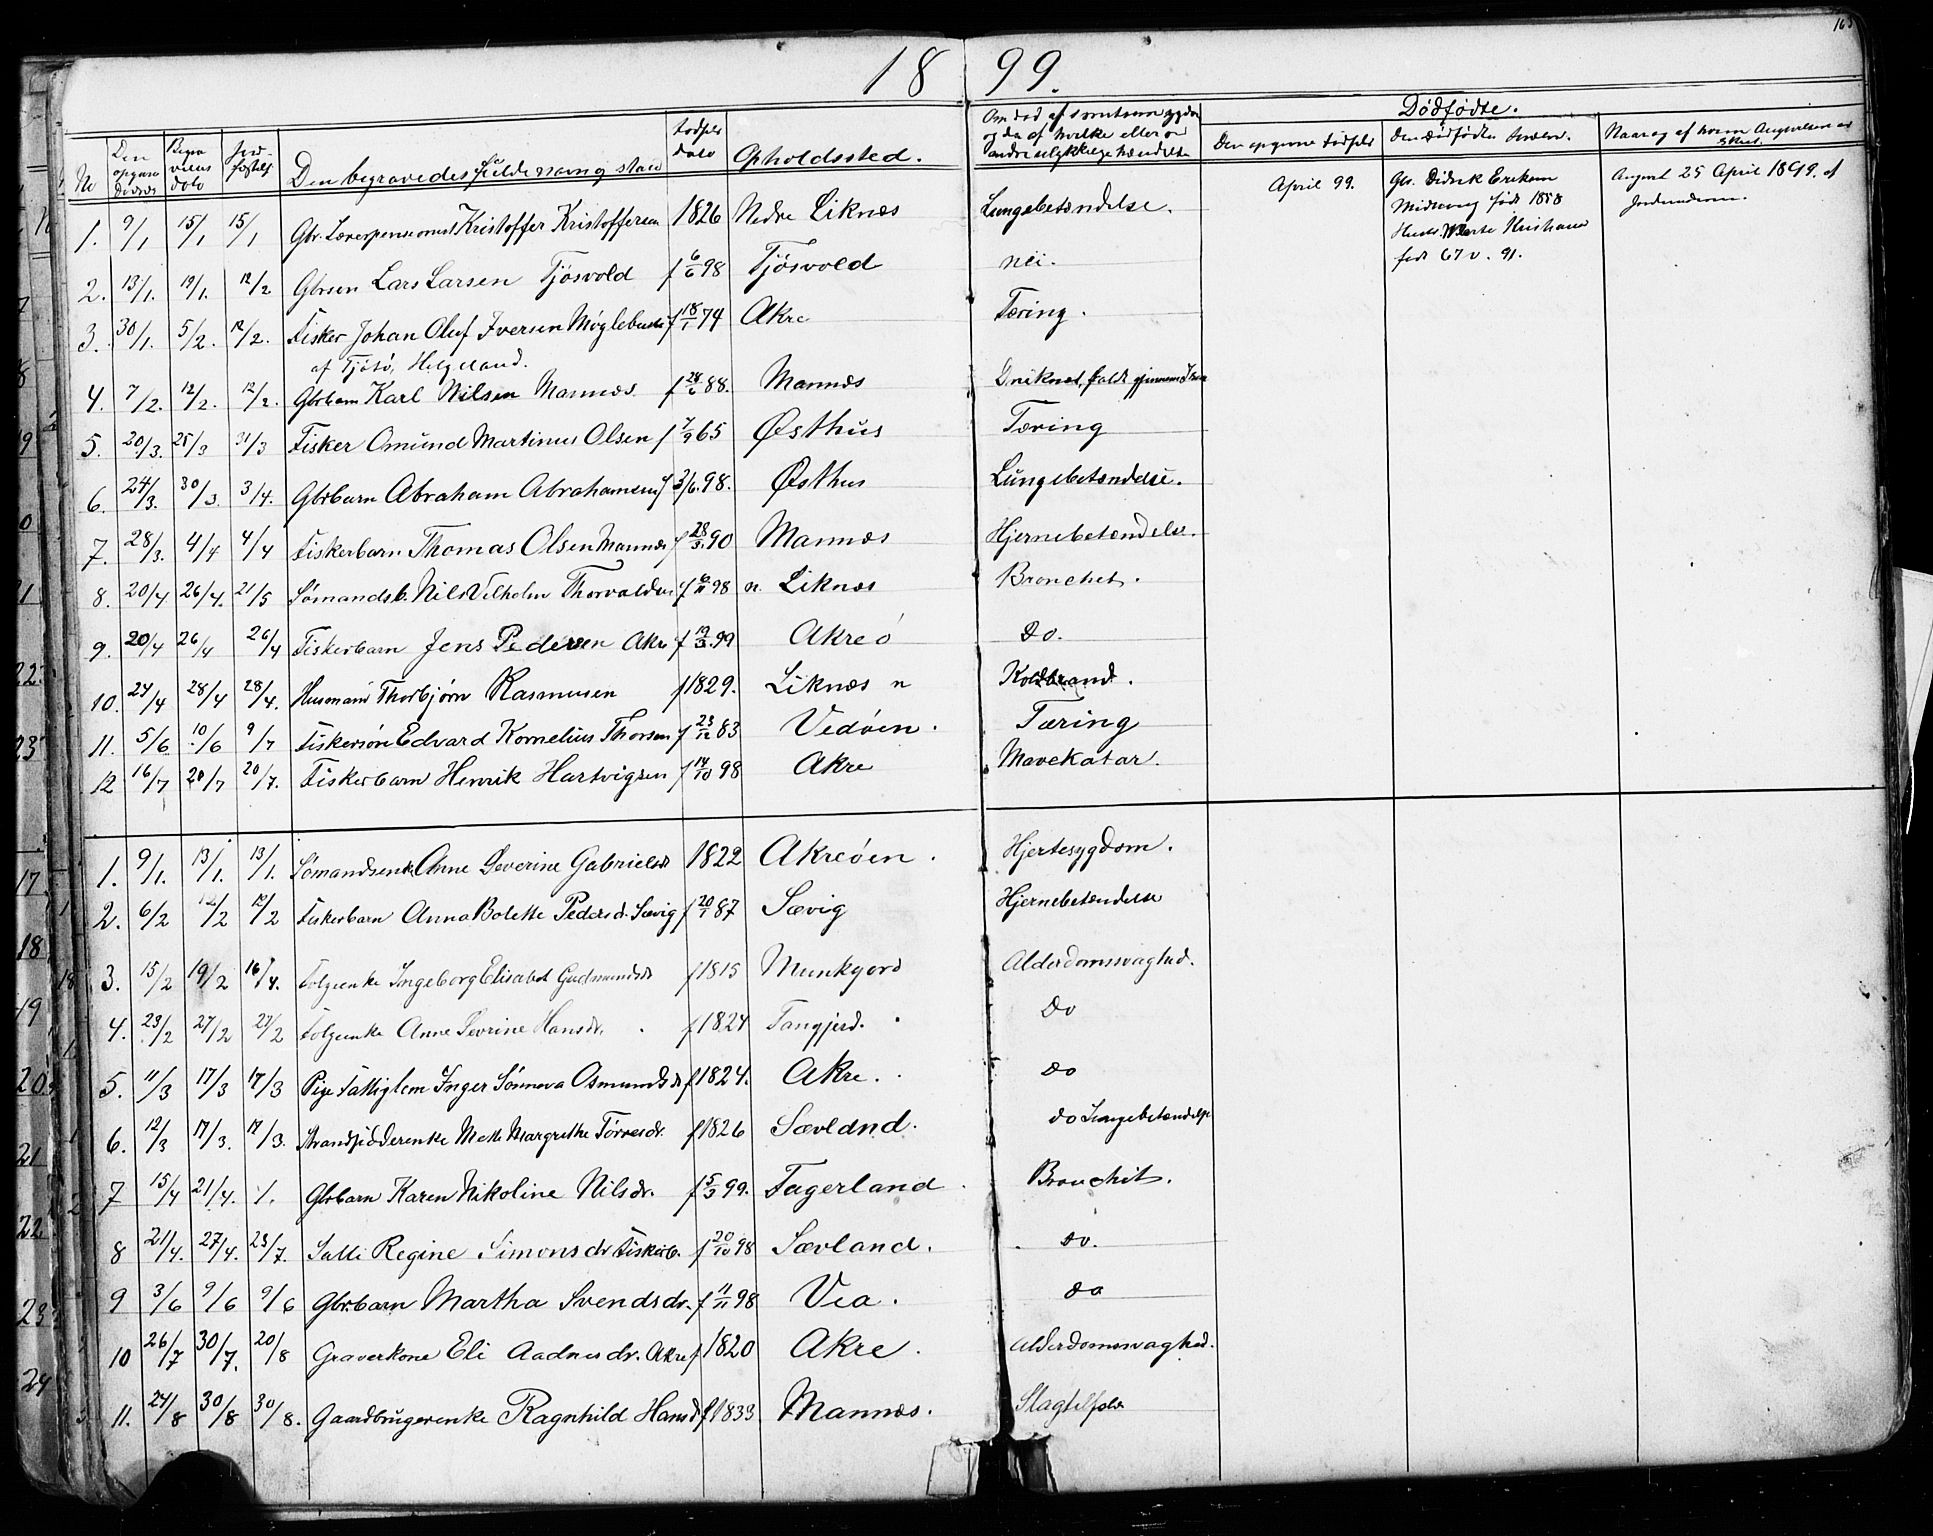 18 99.
No | Den opgivne Dødsd. | Begravelses dato | Jordfæstels | Den begravedes fulde navn og stand | Fødsels dato | Opholdssted. | Om død af smitsom sygdom og da af hvilke eller ved andre ulykkelige hændelse | Dødfødte. | Den opgivne fødsels | Den dødfødtes | Naar og af hvem Angivelsen er sket.
1. 9/1 15/1 15/1 Gbr. Lærerpensionist Kristoffer Kristoffersen 1826 Nedre Liknæs Lungebetændelse. April 99. Gbr. Didrik Eriksen August 25 April 1899 af
født 1858 Jordmoderen.
Hustr. Marte Kristiane
født 67 v. 91.
2. 13/1. 19/1. 12/2 Gbrsøn Lars Larsen Tjøsvold f 6/6 98 Tjøsvold nei.
3. 30/1. 5/2. 12/2. Fisker Johan Oluf Iversen f 18/1 74 Akre Tæring.
af Tjøtø, Helgeland.
4. 7/2. 12/2. 12/2. Gbrbarn Karl Nilsen Mannæs. f 28/6 88. Mannæs Druknet, faldt gjennem Isen
5. 20/3. 25/3 31/3 Fisker Omund Martinus Olsen f 7/9 65 Østhus Tæring
6. 24/3. 30/3. 3/4. Gbrbarn Abraham Abrahamsen f 3/6. 98. Østhus Lungebetændelse.
7. 28/3. 4/4 4/4 Fiskerbarn Thomas Olsen Mannæs f 28/3. 90 Mannæs Hjernebetændelse.
8. 20/4 26/4. 21/5 Sømandsb. Nils Vilhelm Thorvaldsen f 6/11 98 n. Liknæs Bronchit.
9. 20/4 26/4 26/4 Fiskerbarn Jens Pedersen Akre f 19/3. 99 Akreø do.
10. 24/4 28/4 28/4. Husmand Thorbjørn Rasmusen f 1829. Liknæs n Koldbrand.
11. 5/6. 10/6 9/7 Fiskersøn Edvard Kornelius Thorsen f 23/12 83 Vedøen. Tæring
12 16/7 20/7 20/7. Fiskerbarn Henrik Hartvigsen f 14/10 98 Akre Mavekatar.
1. 9/1. 13/1. 13/1. Sømandsenke Anne Severine Gabrielsdr 1822 Akreøen. Hjertesygdom.
2. 6/2 12/2 12/2 Fiskerbarn Anna Bolette Pedersd. Sævig f 20/1 87 Sævig Hjernebetændelse
3. 15/2 19/2 16/4. Folgeenke Ingeborg Elisabet Gudmundsdr f 1815 Munkgjord Alderdomssvaghed.
4. 23/2 27/2 27/2 Folgeenke Anne Sevrine Hansdr. f 1824 Tangjerd. Do
5. 11/3 17/3 17/3 Pige Fattiglem Inger Sønneva Osmundsdr f 1824. Akre. do
6. 12/3 17/3. 17/3. Strandsidderenke Mette Margrethe Torresdr. f 1826 Sævland. do Lungebetændelse
7 15/4 21/4. /. Gbrbarn Karen Nikoline Nilsdr. f 5/3 99. Fagerland. Bronchit.
8 21/4. 27/4. 23/7. Salli Regine Simonsdr Fiskerb. f 20/10 98 Sævland. do.
9 3/6 9/6 9/6 Gbrbarn Martha Svendsdr. f 11/11 98 Vea. do
10 26/7 30/7. 20/8 Graverkone Eli Aadnesdr. Akre f 1820 Akre. Alderdomssvaghed.
11. 24/8 30/8 30/8. Gaardbrugerenke Ragnhild Hansdr f 1833 Mannæs. Slagtilfælde